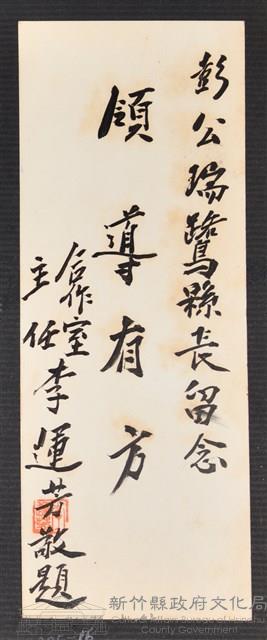 彭公瑞鷺縣長留念
領導有方
合作室
主任李運芳敬題
新竹縣政府文化局
Cultural Affairs Bureau of Hsinchu